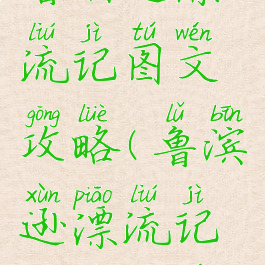 liú jì tú wén
流记图文
gōng lüè lǔ bīn
攻略(鲁滨
xùn piāo liú jì
逊漂流记